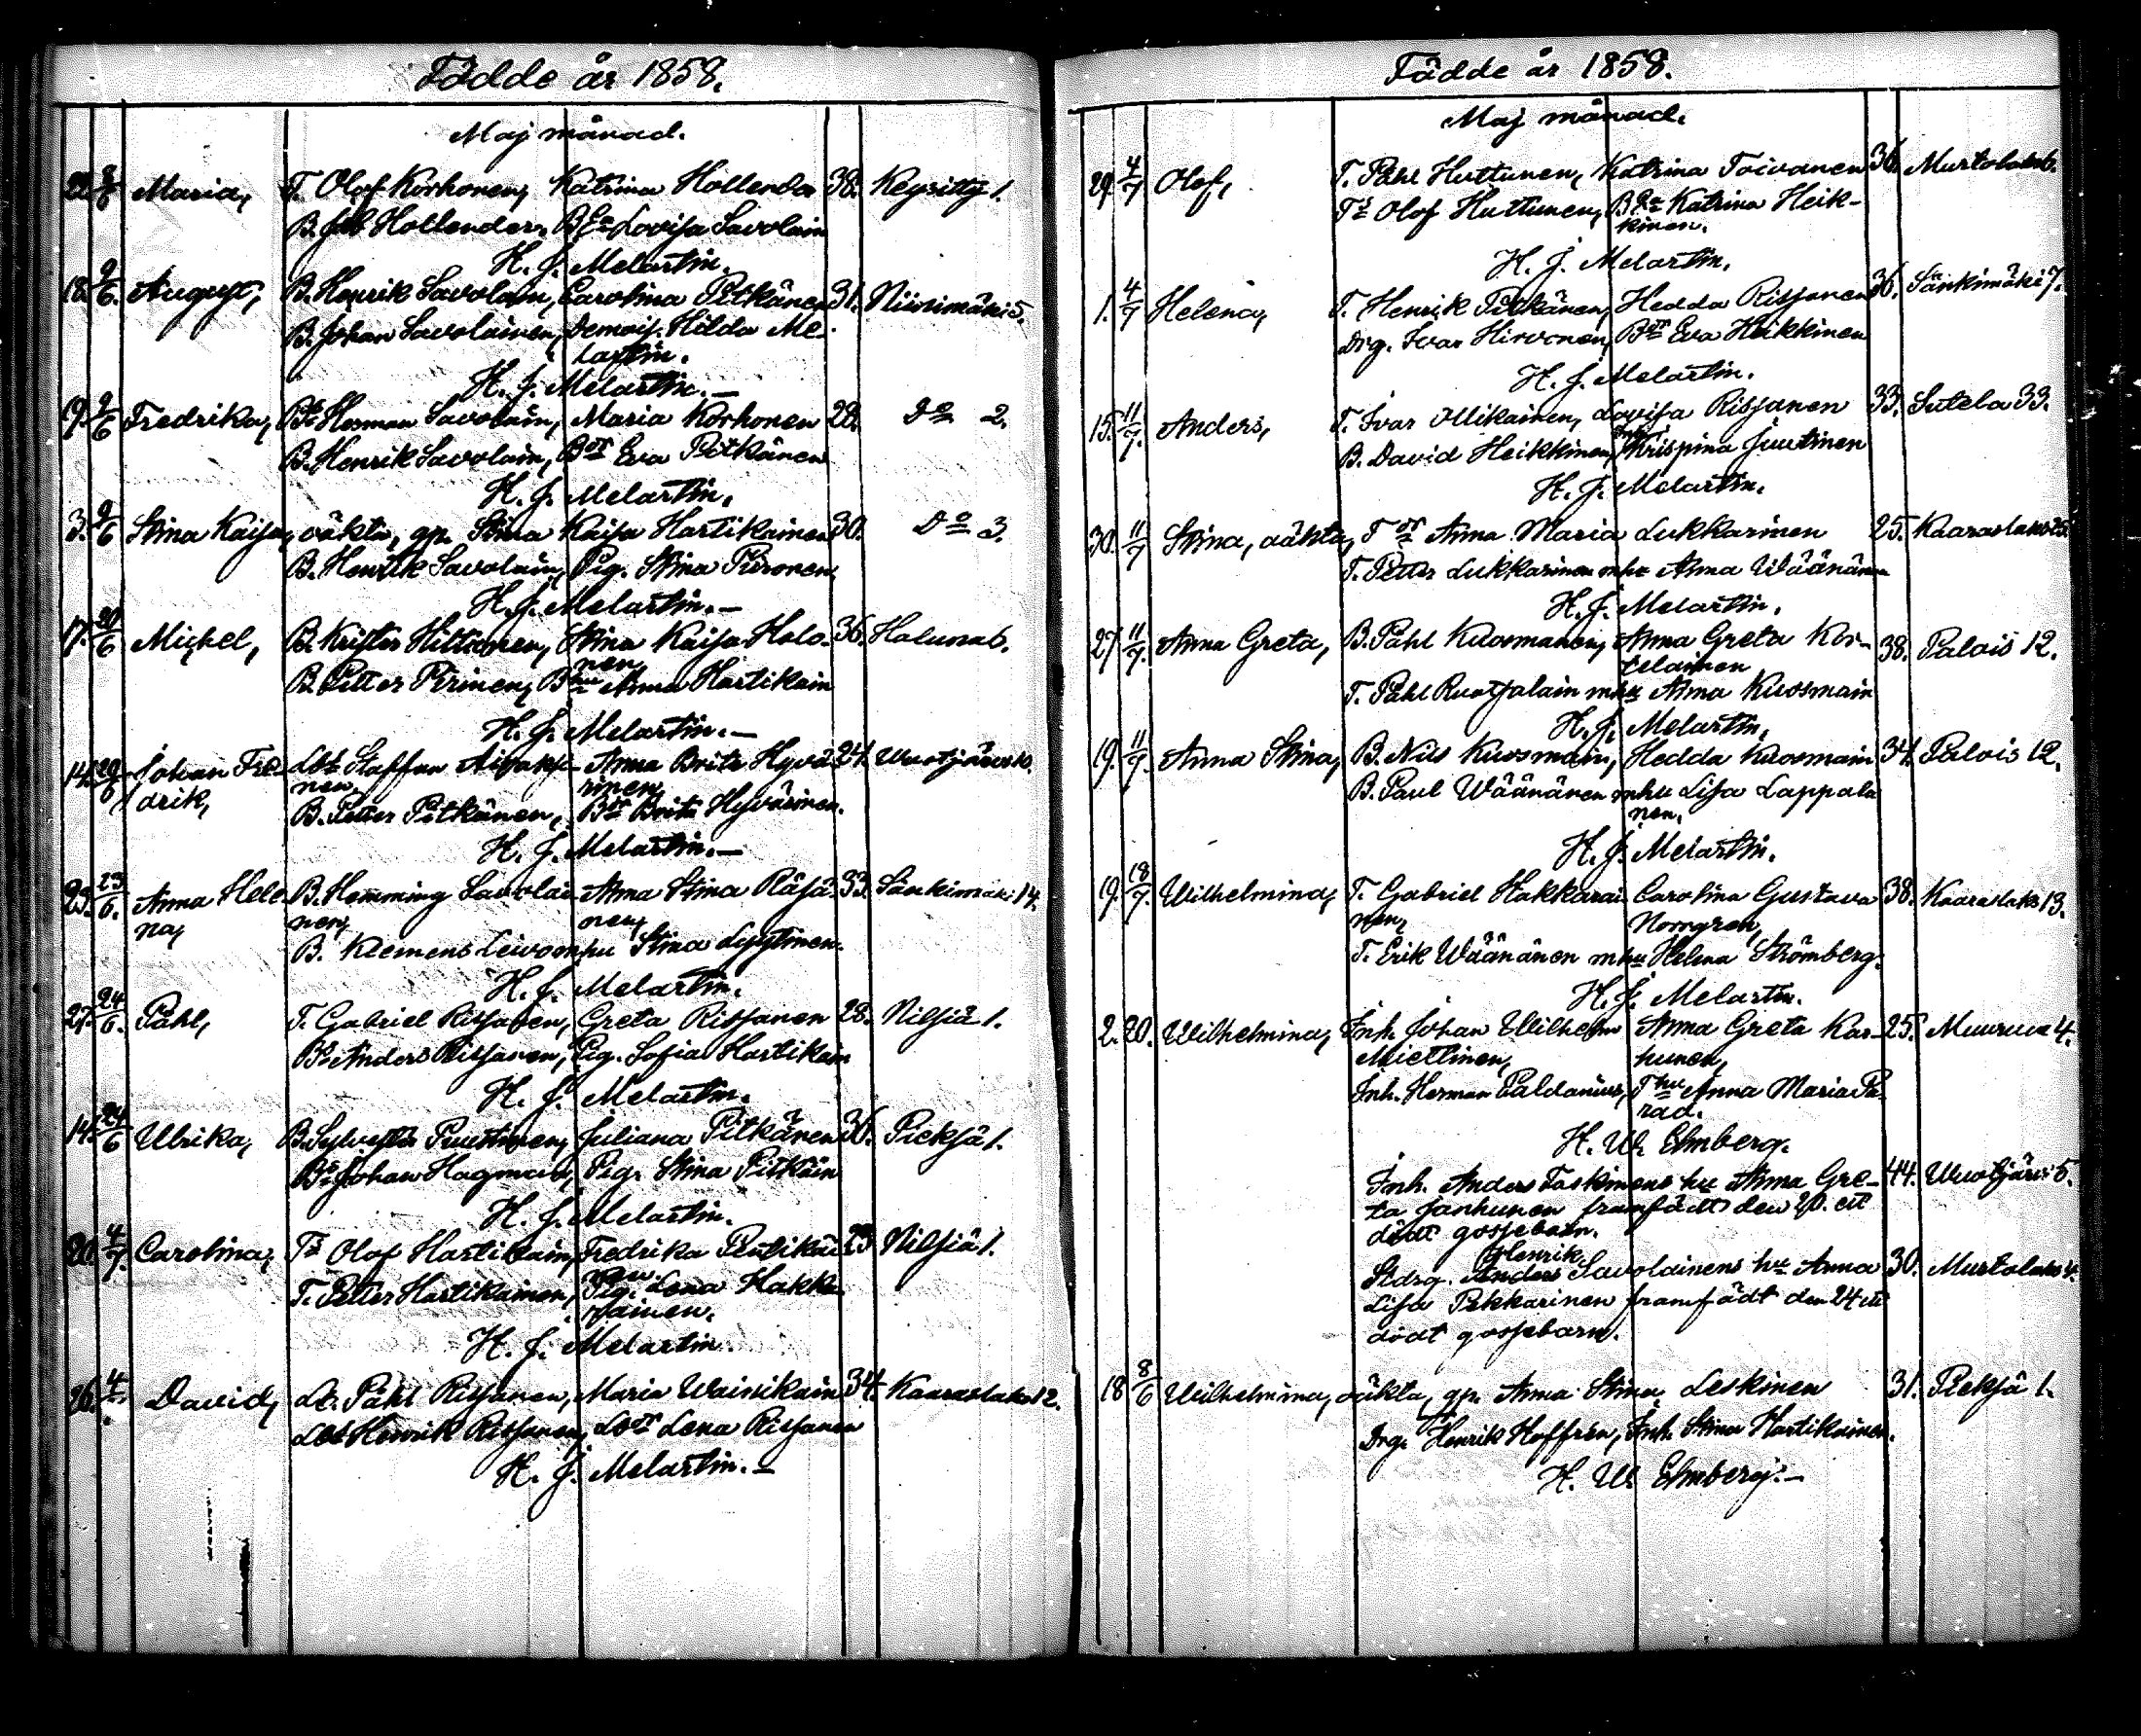 Födde år 1858.
Maj månad.
22. 8/6 Maria, T. Olof Korhonen, Katrina Hollender 38. Keyritty 1.
B. Hollender, Lovisa Savolain
H. J. Melartin.
18. 9/6. August, B. Henrik Savolain, Carolina Pitkänen 31. Niinimäki 5.
B. Johan Savolainen, Demois. Hilda Me-
lartin.
H. J. Melartin.—
19. 9/6 Fredrika, Bs Herman Savolain, Maria Korhonen 28. Do 2.
B. Henrik Savolain, Bdr Eva Pitkänen
H. J. Melartin.
3. 9/6 Stina Kaisa, oäkta, gp. Stina Kaisa Hartikainen 30. Do 3.
B. Henrik Savolain, Pig. Stina Piironen,
H. J. Melartin.—
17. 20/6 Michel, B. Krister Hiltunen, Stina Kaisa Holo- 36. Haluna 6.
nen,
B. Petter Pirinen, Bhu Anna Hartikain
H. J. Melartin.—
14. 20/6 Johan Fre- Lbt Staffan Anna Brita Hyvä- 24. Wuotjärvi 10.
drik, nen, rinen,
B. Petter Pitkänen, Bdr Brita Hyvärinen.
H. J. Melartin.—
23. 23/6. Anna Hele- B. Hemming Savolai- Anna Stina Räsä- 33. Sänkimäki 14.
na, nen, nen,
B. Klemens Leivo mhu Stina Lyytinen.
H. J. Melartin.
27. 24/6. Påhl, T. Gabriel Rissanen, Greta Rissanen 28. Nilsiä 1.
Bs Anders Rissanen, Pig. Sofia Hartikain
H. J. Melartin.
14. 24/6 Ulrika, B. Sylvester Puustinen, Juliana Pitkänen 36. Pieksä 1.
Bs Johan Hagman, Pig. Stina Pitkäin
H. J. Melartin.
20. 4/7. Carolina, Ts Olof Hartikain, Fredrika Pentikäi- 23 Nilsiä 1.
nen.
T. Petter Hartikainen, Pig. Lena Hakka-
rainen.
H. J. Melartin.
26. 4/. David, Lt. Påhl Rissanen, Maria Wainikain 34. Kaaraslaks 12.
Lbt Henrik Rissanen, Lbdr Lena Rissanen
H. J. Melartin.—
Födde år 1858.
Maj månad.
29. 4/7 Olof, T. Påhl Huttunen, Katrina Toivanen 36. Murtolaks 6.
Ts Olof Huttunen, Katrina Heik-
kinen.
H. J. Melartin.
1. 4/7 Helena, T. Henrik Pitkänen, Hedda Rissanen 36. Sänkimäki 7.
Drg. Ivar Hirvonen, Bdr Eva Heikkinen
H. J. Melartin.
15. 11/7. Anders, T. Ivar Miikainen, Lovisa Rissanen 33. Sutela 33.
B. David Heikkinen, Krispina Juutinen
H. J. Melartin.
30. 11/7 Stina, oäkta, Tdr Anna Maria Lukkarinen 25. Kaaraslaks 25.
T. Petter Lukkarinen mhu Anna Wäänänen
H. J. Melartin.
27. 11/7. Anna Greta, B. Påhl Kuosmanen, Anna Greta Kor- 38. Palois 12.
telainen
T. Påhl Ruotsalain mhu Anna Kuosmain
H. J. Melartin.
19. 11/7 Anna Stina, B. Nils Kuosmain, Hedda Kuosmain 34. Palois 12.
B. Paul Wäänänen mhu Lisa Lappala
nen.
H. J. Melartin.
19. 18/7. Wilhelmina, T. Gabriel Hakkarai- Carolina Gustava 38. Kaaraslaks 13.
nen, Norrgren,
T. Erik Wäänänen mhu Helena Strömberg.
H. J. Melartin.
2. 20. Wilhelmina, Inh. Johan Wilhelm Anna Greta Kar- 25. Muuruu 4.
Miettinen, hunen,
Inh. Herman Paldanius, Thu Anna Maria Pa-
rad.
H. W. Elmberg.
Inh. Anders Taskinens hu Anna Gre- 44. Wuotjärvi 5.
ta Janhunen framfödt den 20. ett
dödt gossebarn.
Henrik
Stdrg. Anders Savolainens hu Anna 30. Murtolaks 4.
Lisa Pekkarinen framfödt den 24 ett
dödt gossebarn.
18 8/6 Wilhelmina, oäkta, gp. Anna Stina Leskinen 31. Pieksä 1.
Drg. Henrik Hoffrén, Inh. Stina Hartikainen.
H. W. Elmberg.—